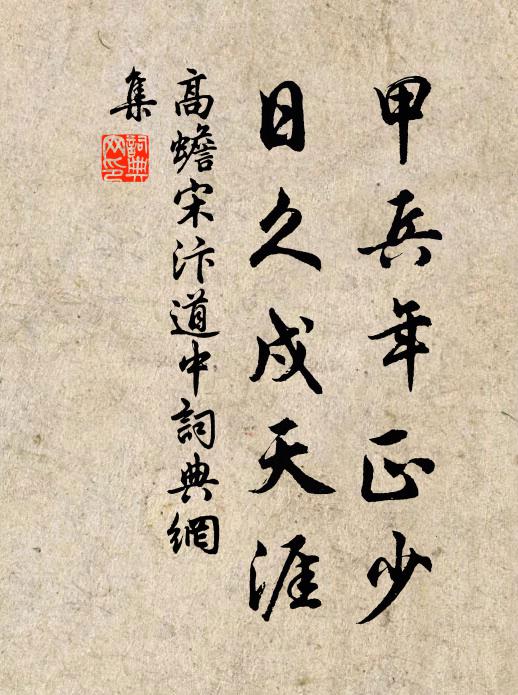 甲兵年正少
日久戍天涯
高蟾宋汴道中詞典網
集
詞典
网印